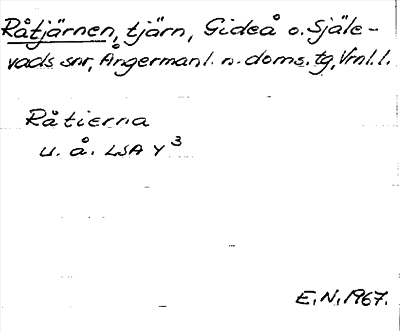 Råtjärnen, tjärn, Gideå o. Själe-
vads snr, Ångermanl. n. doms. tg, Vrnl. l.
Råtierna
u. å. LSA Y 3
E. N. 1967.